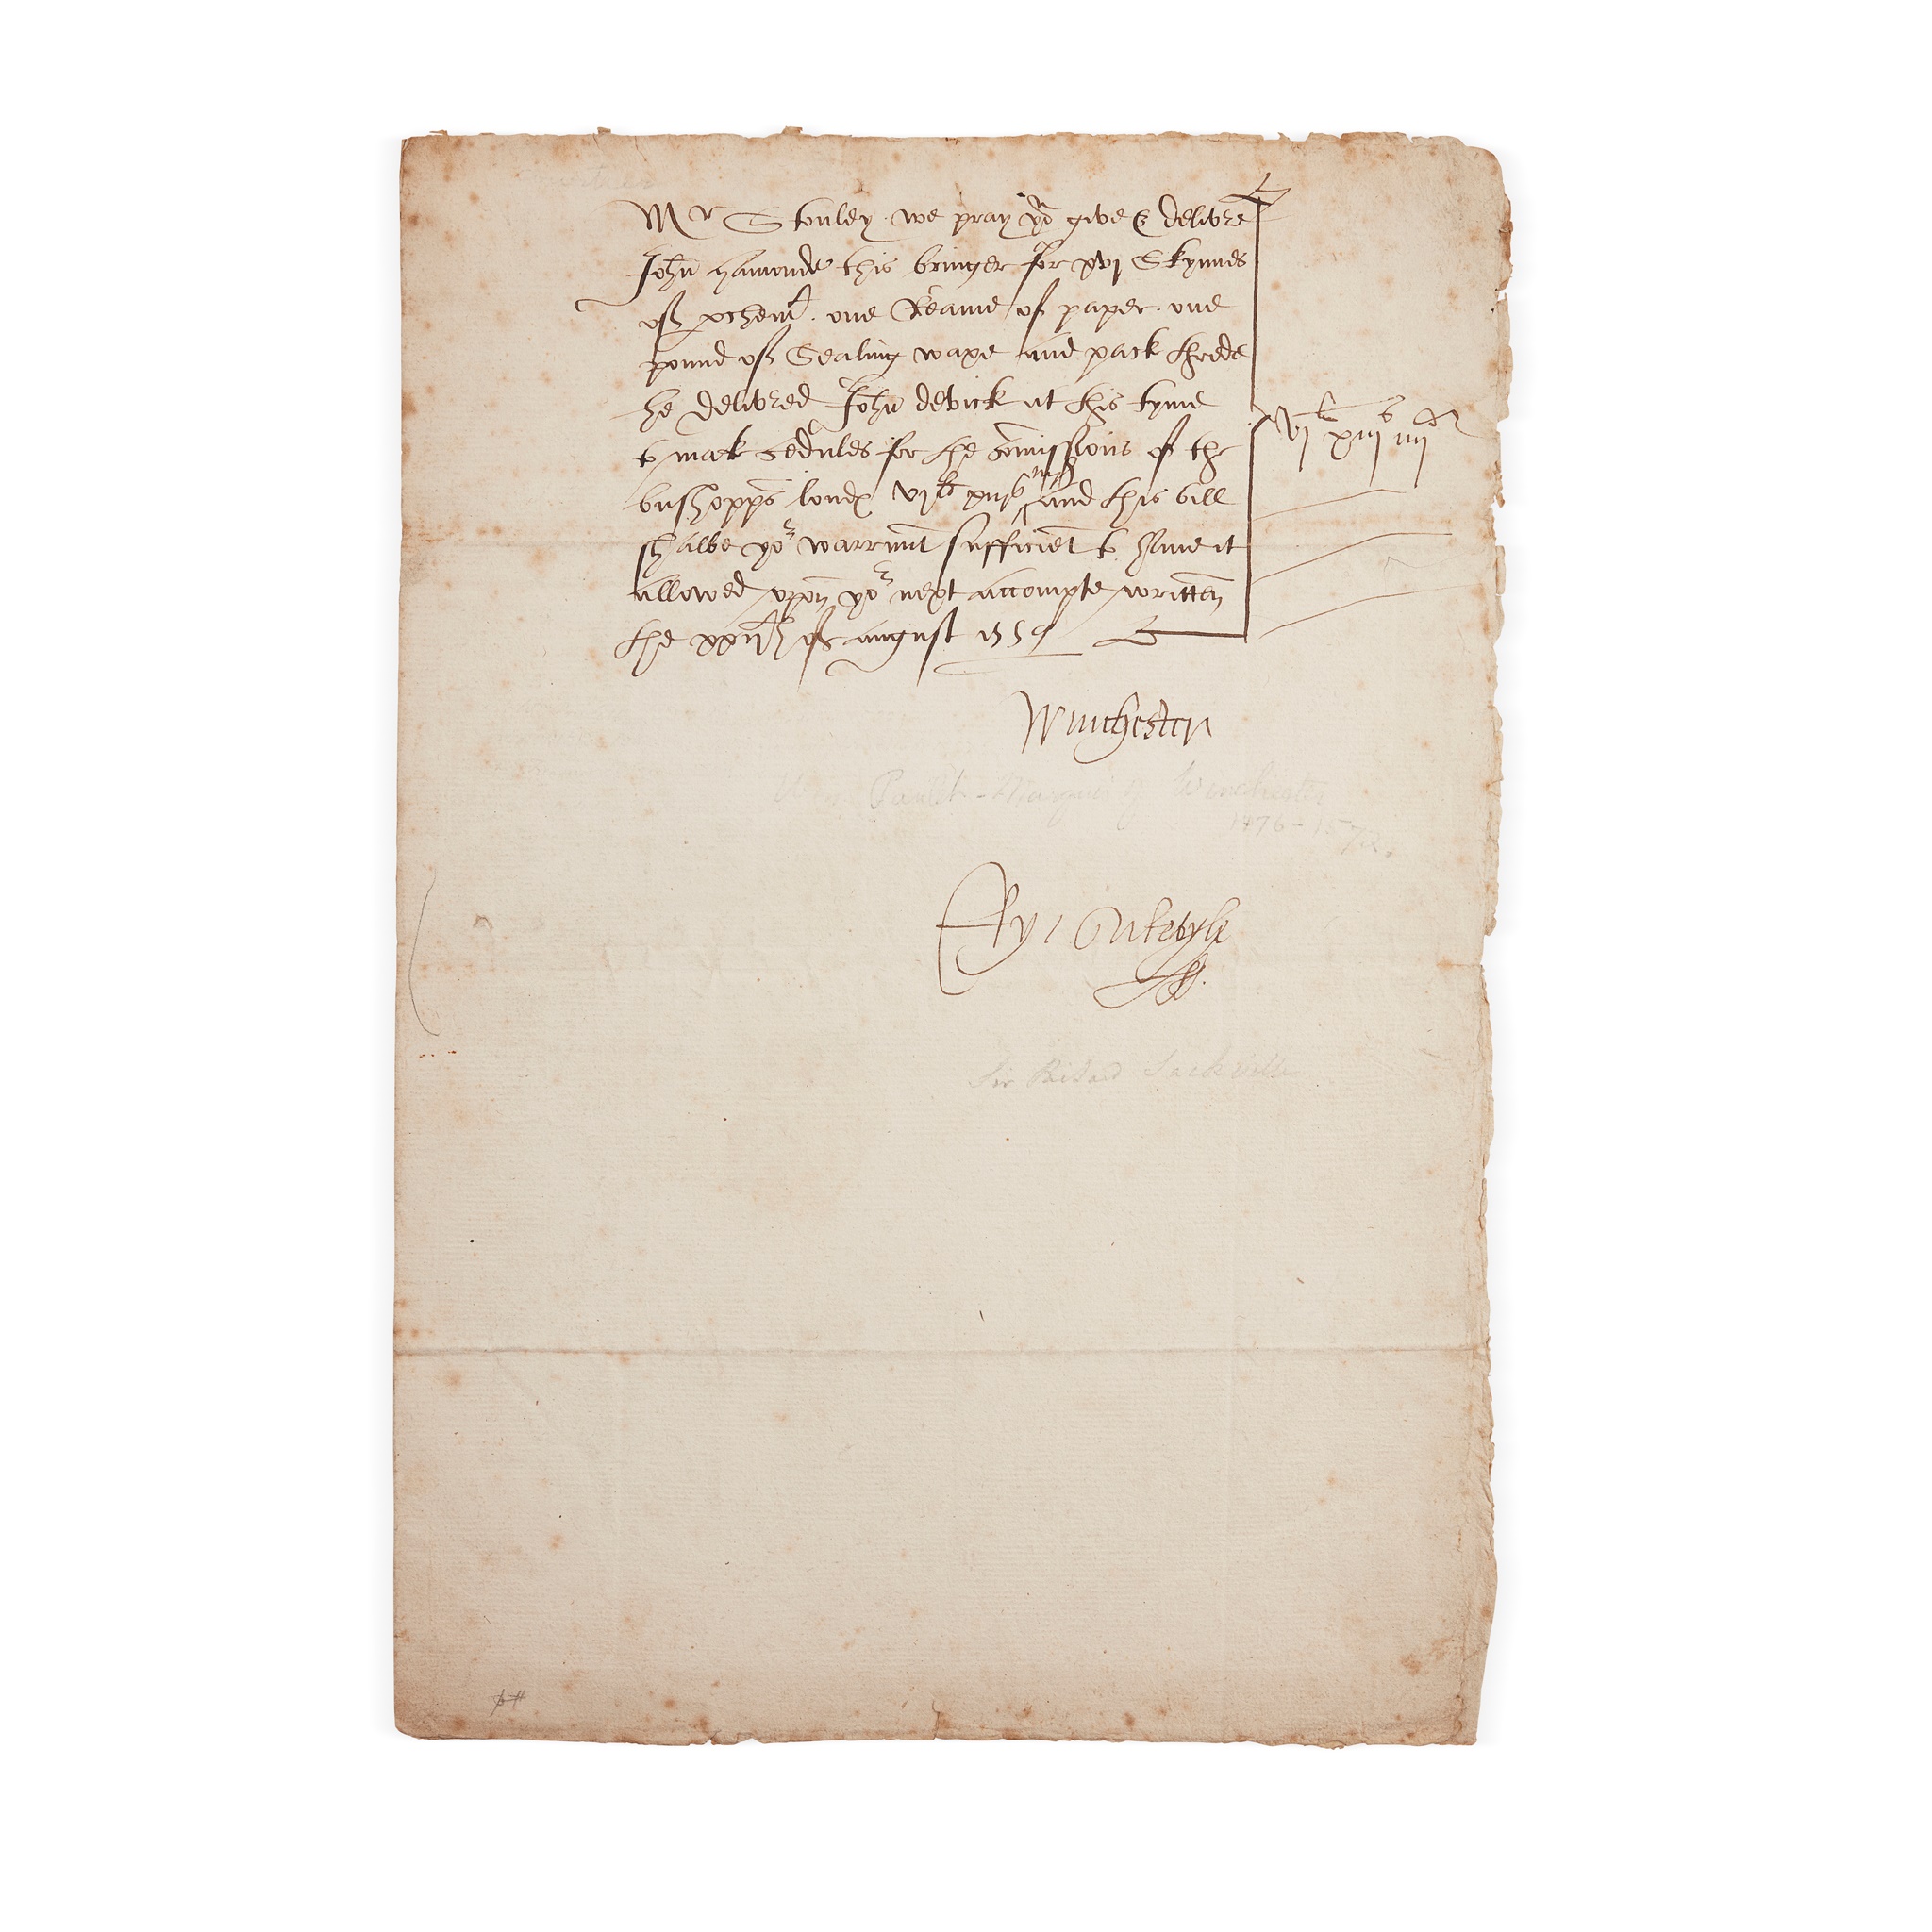 Mr Stonley we pray yo give & delivre
John hamonde this bringer for xvj Skynnes
off pchemt . one Reame off paper . one
pound off Sealing waxe and pack threde
he delivred John devick at this tyme
to mak cedules for the comissions of the
busshopps londs vj li xiijs iiijd and this bill
shalbe yor warrant sufficient to have it
allowed vpon yor next accompte written
the xxijth of august 1559
vj li xiij s iiij d
Winchester
Paulet - Marquis of Winchester
1476 - 1572.
Ry: Sakevyle
Sir Richard Sackville